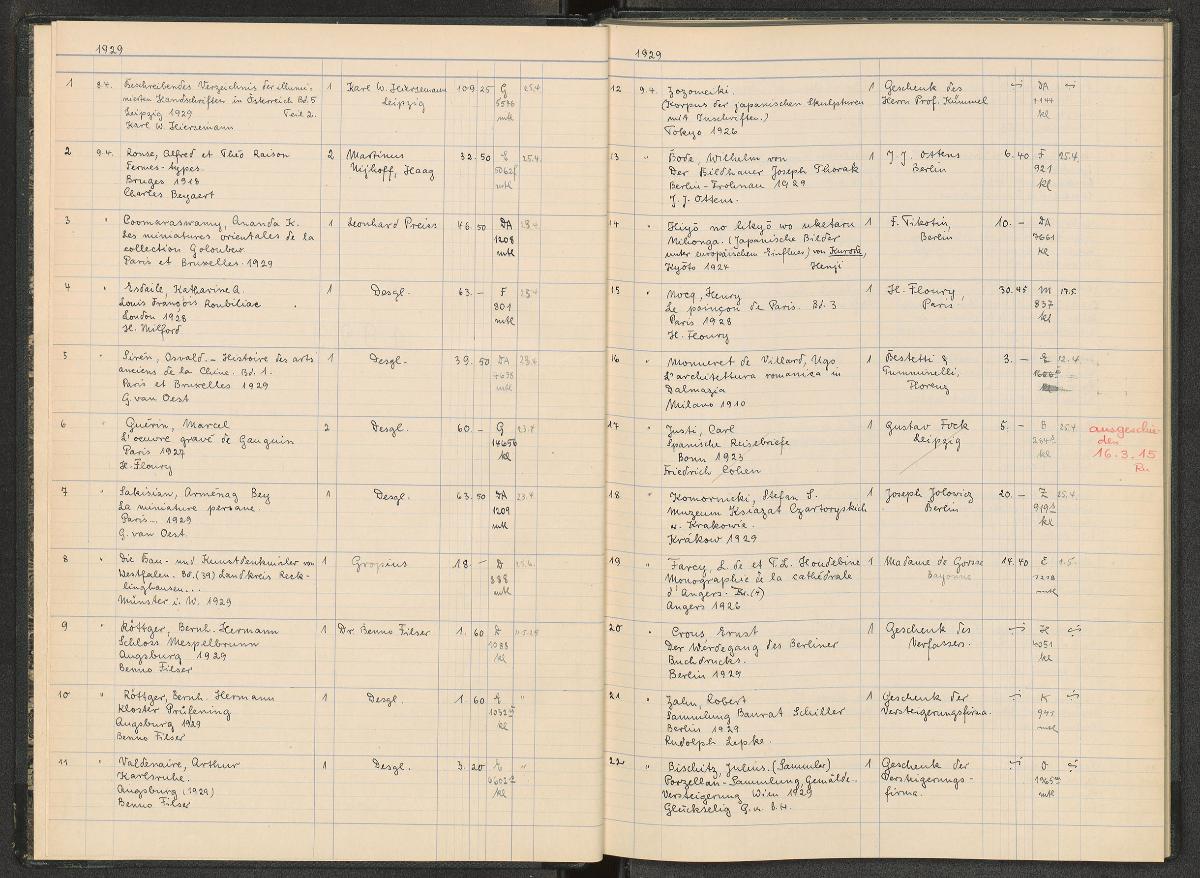 1929
1 8.4. Beschreibendes Verzeichnis der illumi- 1 Karl W. Hiersemann 109.25 G 25.4
nierten Handschriften in Österreich Bd. 5 Leipzig
Leipzig 1929 Teil 2. mtl
Karl W. Hiersemann
2 9.4. Ronse, Alfred et Théo Raison 2 Martinus 32.50 25.4.
Fermes-types. Nijhoff, Haag
Bruges 1918 mtl
Charles Beyaert
3 " Coomaraswamy, Ananda K. 1 Leonhard Preiss 46.50 DA 23.4
Les miniatures orientales de la 1208
collection Goloubew mtl
Paris et Bruxelles. 1929
4 " Esdaile, Katharine A. 1 Desgl. 63.- F 23.4
Louis François Roubiliac 801
London 1928 mtl
H. Milford
5 " Sirén, Osvald. - Histoire des arts 1 Desgl. 39.50 DA 23.4.
anciens de la Chine. Bd. 1.
Paris et Bruxelles 1929 mtl
G. van Oest
6 " Guérin, Marcel 2 Desgl. 60.- G 23.4
L'oeuvre gravé de Gauguin 1465b
Paris 1927 kl
H. Floury
7 " Sakisian, Arménag Bey 1 Desgl. 63.50 DA 23.4
La miniature persane. 1209
Paris 1929 mtl
G. van Oest
8 " Die Bau- und Kunstdenkmäler von 1 Gropius 18.- D
Westfalen. Bd. (39) Landkreis Reck- 388
linghausen... mtl
Münster i. W. 1929
9 " Röttger, Bernh. Hermann 1 Dr. Benno Filser 1.60
Schloss Mespelbrunn 1088
Augsburg 1929 kl
Benno Filser
10 " Röttger, Bernh. Hermann 1 Desgl. 1.60 "
Kloster Prüfening
Augsburg 1929 kl
Benno Filser
11 " Valdenaire, Arthur 1 Desgl. 3.20 "
Karlsruhe.
Augsburg (1929) kl
Benno Filser
1929
12 9.4. Zozomeiki. 1 Geschenk des DA
(Korpus der japanischen Skulpturen Herrn Prof. Kümmel
mit Inschriften.) kl
Tokyo 1926
13 " Bode, Wilhelm von 1 J. J. Ottens 6.40 F 25.4.
Der Bildhauer Joseph Thorak Berlin 921
Berlin-Frohnau 1929 kl
J. J. Ottens.
14 " Hiyō no Eikyō wo uketaru 1 F. Tikotin, 10.- DA
Nihonga. (Japanische Bilder Berlin
unter europäischem Einfluss) von Kuroda, kl
Kyōto 1924 Henji
15 " Nocq, Henry 1 H. Floury, 30.45 M 17.5.
Le poinçon de Paris. Bd. 3 Paris 837
Paris 1928 kl
H. Floury
16 " Monneret de Villard, Ugo 1 Bestetti & 3.- 12.4.
L'architettura romanica in Tumminelli,
Dalmazia Florenz
Milano 1910
17 " Justi, Carl 1 Gustav Fock 5.- B 25.4. ausgeschie-
Spanische Reisebriefe Leipzig den
Bonn 1923 kl 16.3.15
Friedrich Cohen Ru
18 " Komornicki, Stefan S. 1 Joseph Jolowicz 20.- Z 25.4.
Muzeum Ksiazat Czartoryskich Berlin
w. Krakowie. kl
Kraków 1929
19 " Farcy, L. de et T. L. Houdebine 1 Madame de Gosse 14.40 E 1.5.
Monographie de la cathédrale Bayonne
d'Angers. Bd. (4) mtl
Angers 1926
20 " Crous, Ernst 1 Geschenk des H
Der Werdegang des Berliner Verfassers.
Buchdrucks. kl
Berlin 1929
21 " Zahn, Robert 1 Geschenk der K
Sammlung Baurat Schiller Versteigerungsfirma.
Berlin 1929 mtl
Rudolph Lepke.
22 " Bischitz, Julius. (Sammler) 1 Geschenk der O
Porzellan-Sammlung, Gemälde. Versteigerungs-
Versteigerung Wien 1929 firma. mtl
Glückselig G. m. b. H.